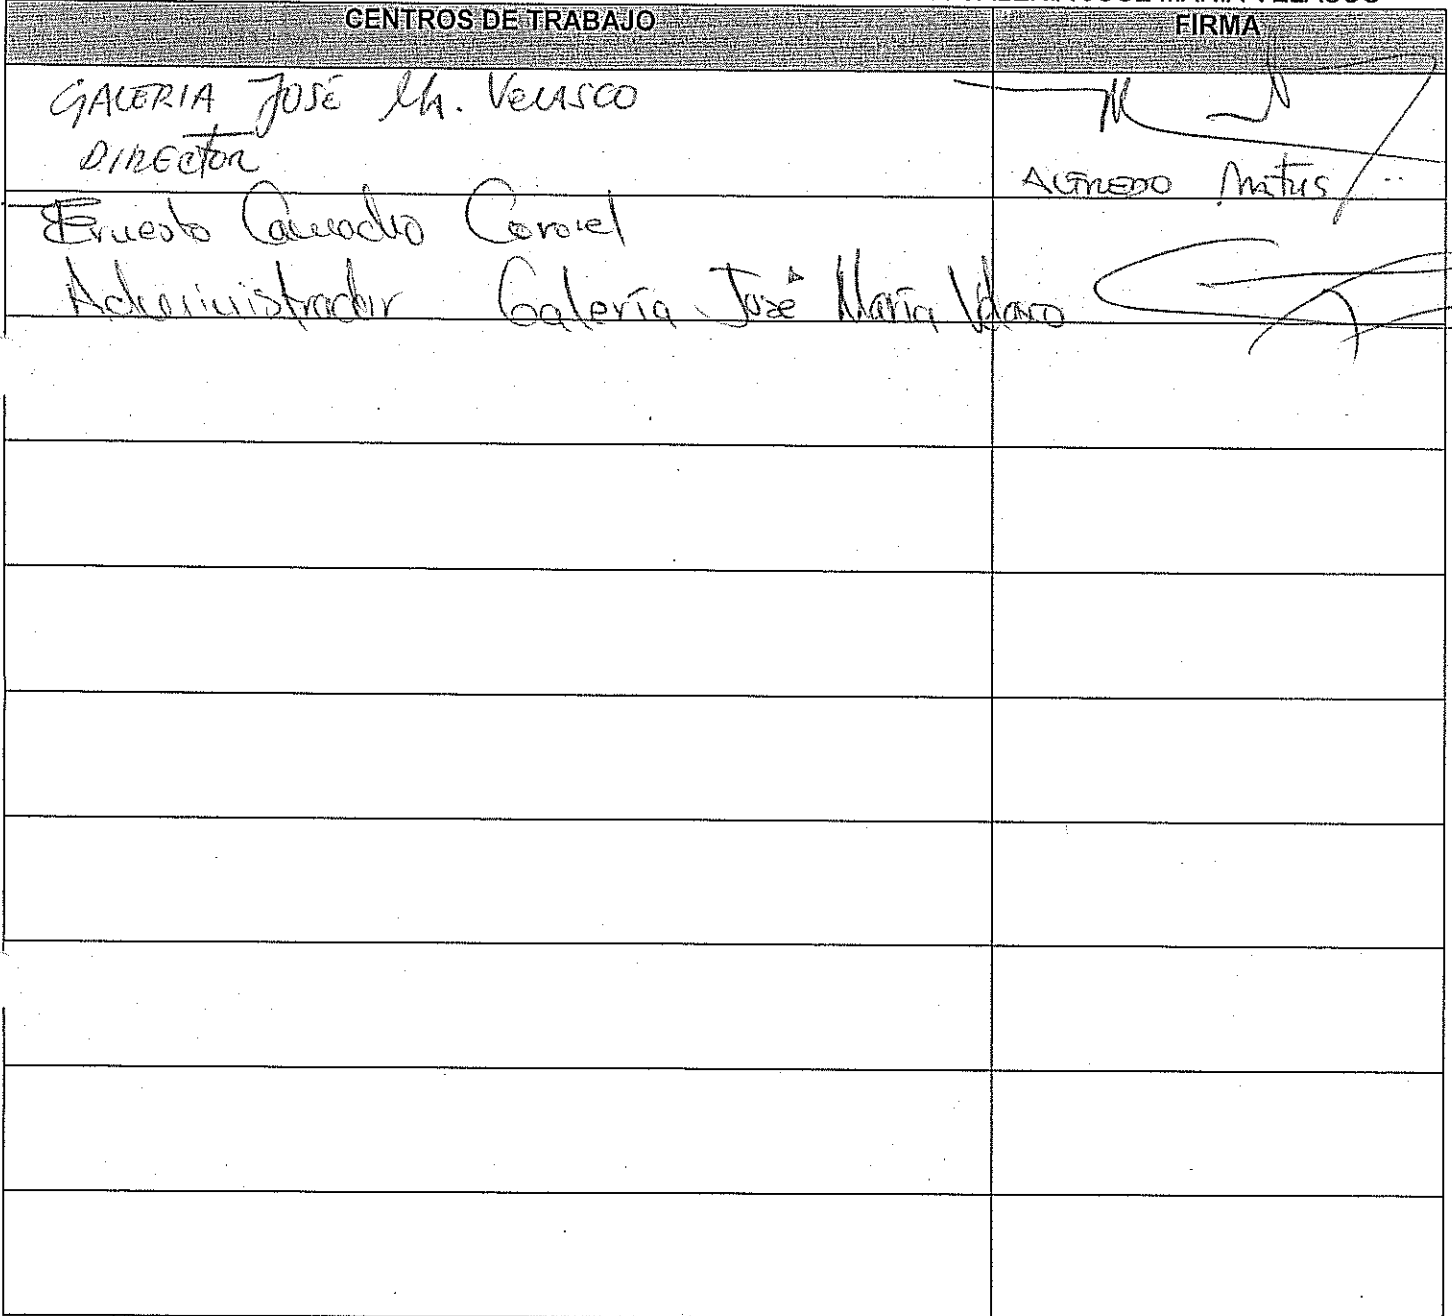 GALERÍA JOSÉ MARÍA VELASCO
CENTROS DE TRABAJO
FIRMA
GALERIA JOSÉ Ma. VELASCO
DIRECTOR
ALFREDO Matus
Ernesto Camacho Coronel
Administrador Galería José María Velasco